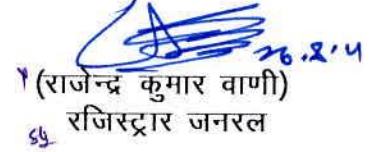 26.8.4
(राजेन्द्र कुमार वाणी)
रजिस्ट्रार जनरल